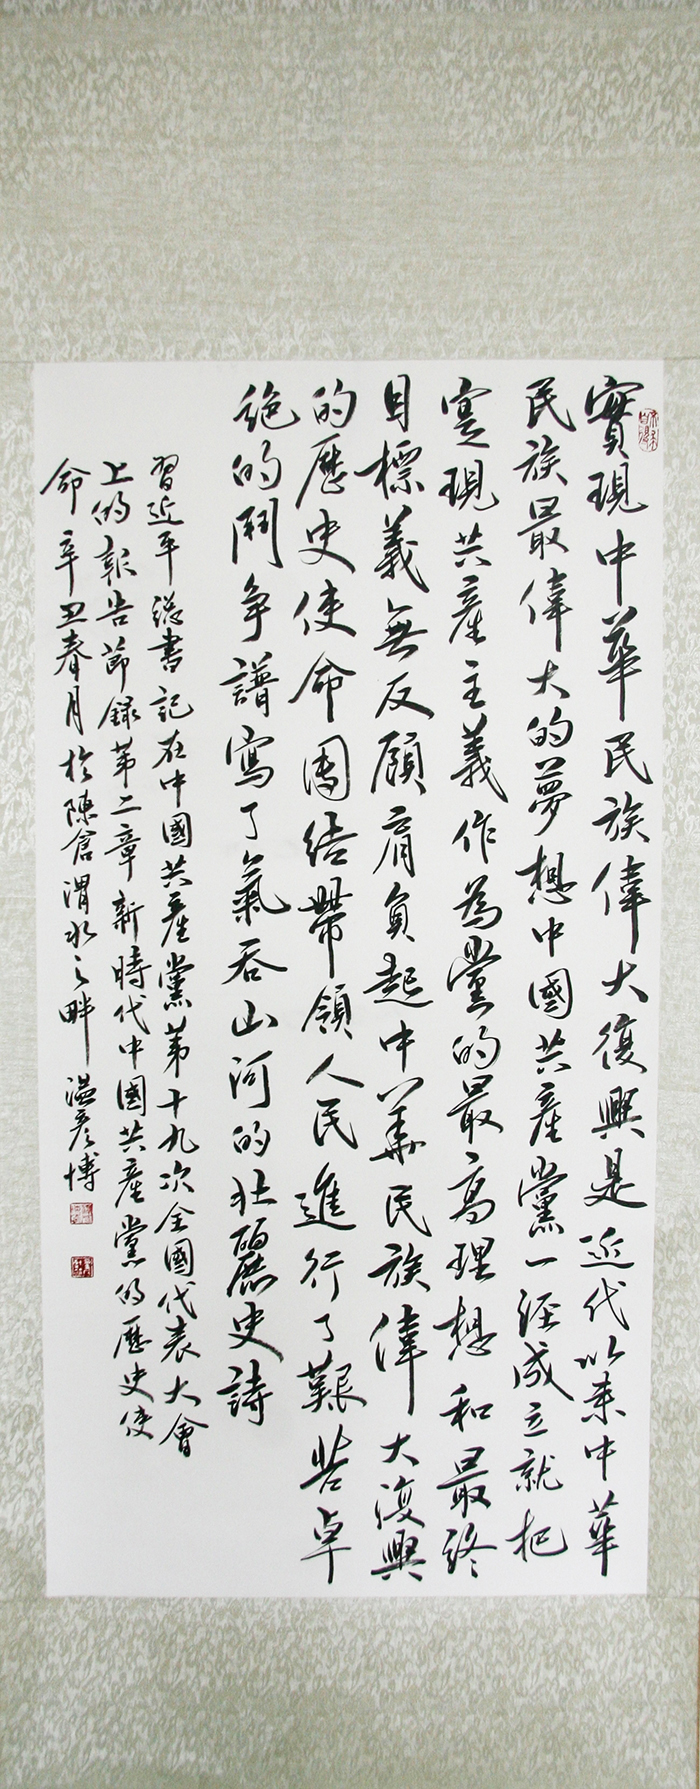 實現中華民族偉大復興是近代以來中華
民族最偉大的夢想中國共產黨一經成立就把
實現共產主義作為黨的最高理想和最終
目標義無反顧肩負起中華民族偉大復興
的歷史使命團結帶領人民進行了艱苦卓
絶的鬥争譜寫了氣吞山河的壯麗史詩
習近平總書記在中國共產黨第十九次全國代表大會
上的報告節錄第二章新時代中國共產黨的歷史使
命辛丑春月於陳倉渭水之畔温彦博